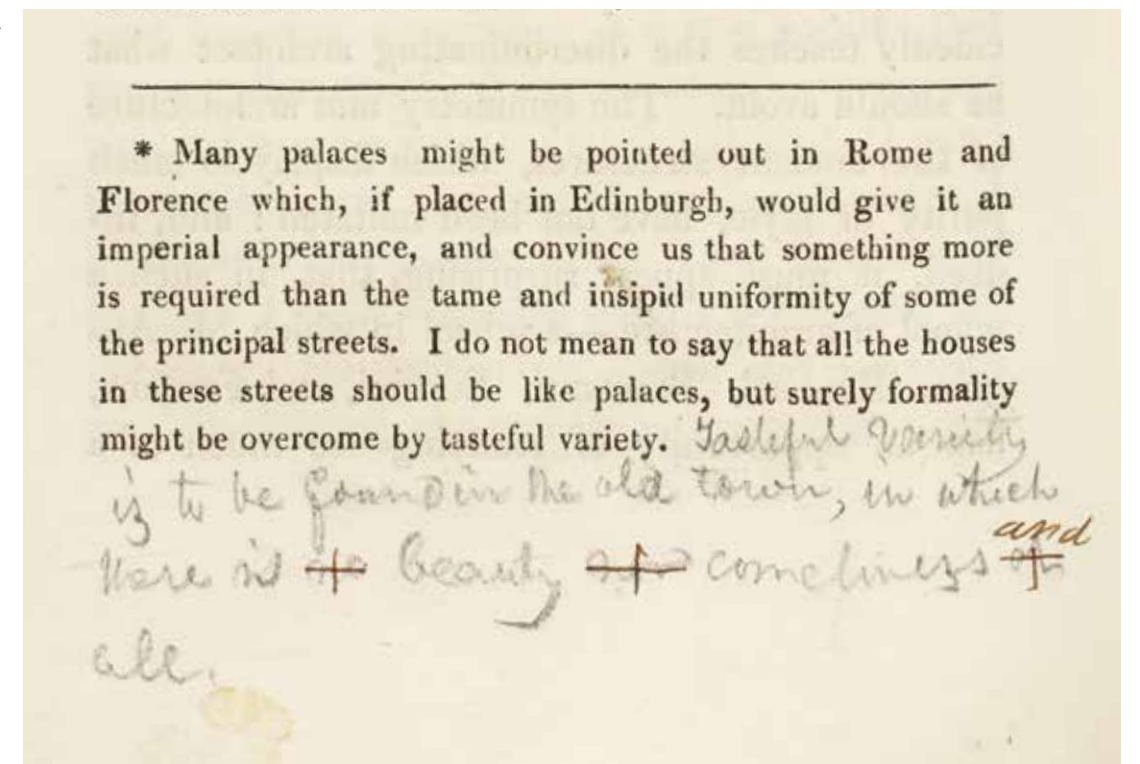 * Many palaces might be pointed out in Rome and
Florence which, if placed in Edinburgh, would give it an
imperial appearance, and convince us that something more
is required than the tame and insipid uniformity of some of
the principal streets. I do not mean to say that all the houses
in these streets should be like palaces, but surely formality
might be overcome by tasteful variety. Tasteful Variety
is to be found in the old town, in which
and
there is no beauty nor comeliness at
all.